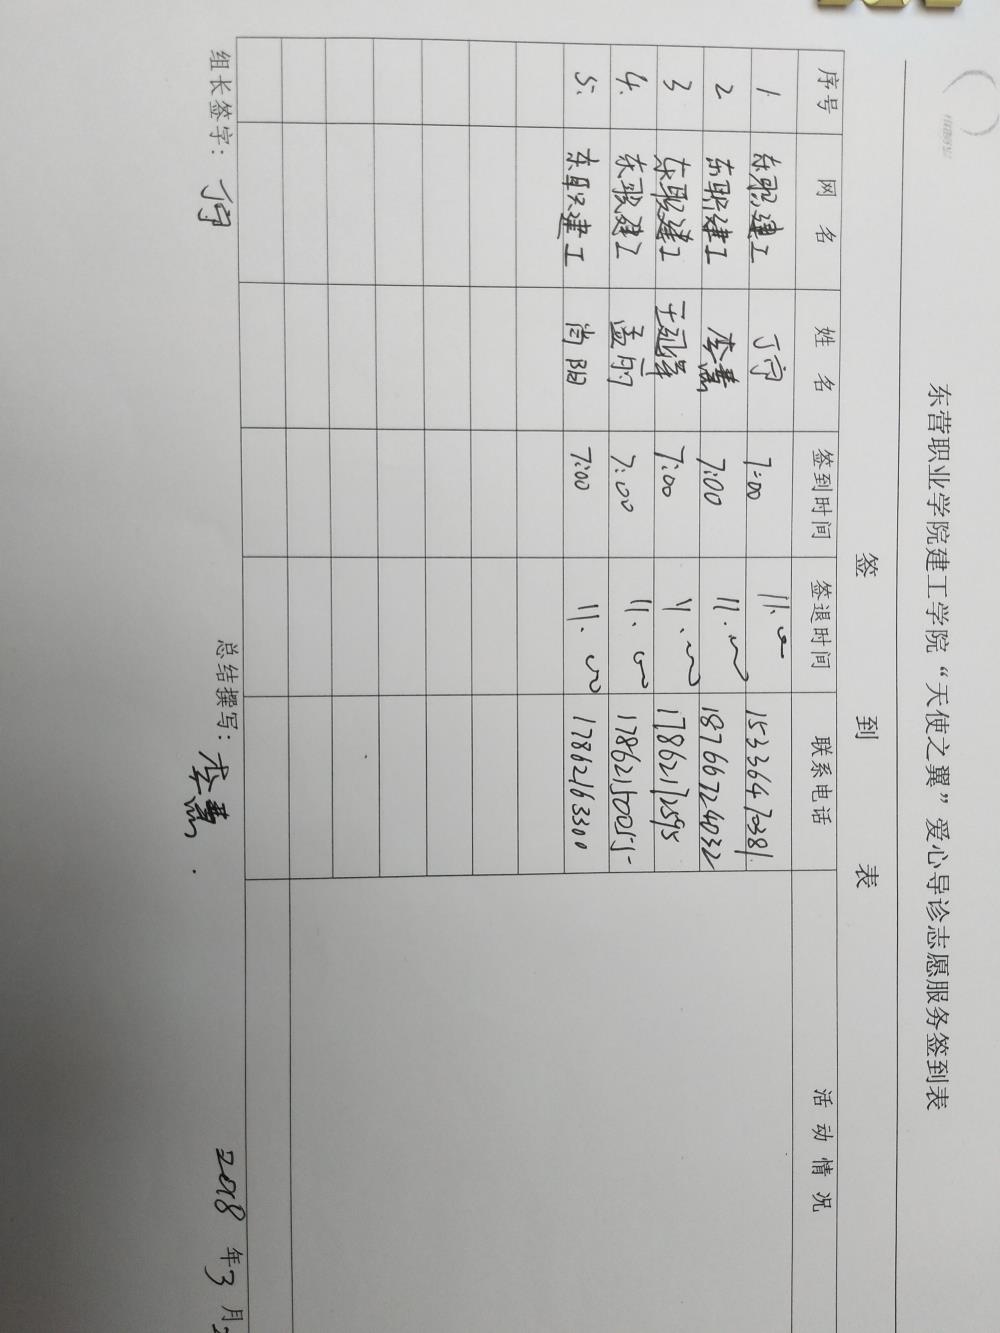 东营职业学院建工学院“天使之翼”爱心导诊志愿服务签到表
签 到 表
序号 网 名 姓 名 签到时间 签退时间 联系电话 活 动 情 况
1 东职建工 丁宁 7:00 11.00 15336472381
2 东职建工 李慧 7:00 11.00 18766724032
3 东职建工 7:00 11.00 17862172595
4. 东职建工 孟雨 7:00 11.00 17862150055
5. 东职建工 肖阳 7:00 11.00 17862163300
组长签字： 丁宁 总结撰写： 李慧 2018 年 3 月